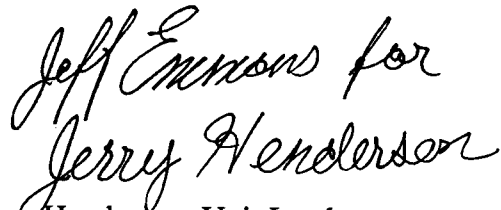 Jeff Emmons for
Jerry Henderson